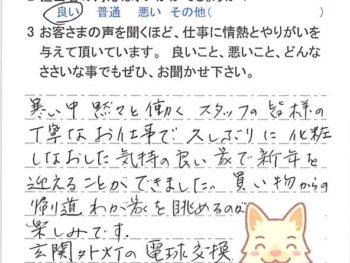 良い 普通 悪い その他(
3 お客さまの声を聞くほど、仕事に情熱とやりがいを
与えて頂いています。 良いこと、悪いこと、どんな
ささいな事でもぜひ、お聞かせ下さい。
寒い中 黙々と働く スタッフの皆様の
丁寧なお仕事で 久しぶりに 化粧
しなおした 気持の良い家で新年を
迎えることができました。 買い物からの
帰り道 わが家を眺めるのが
楽しみです。
玄関外灯の 電球交換